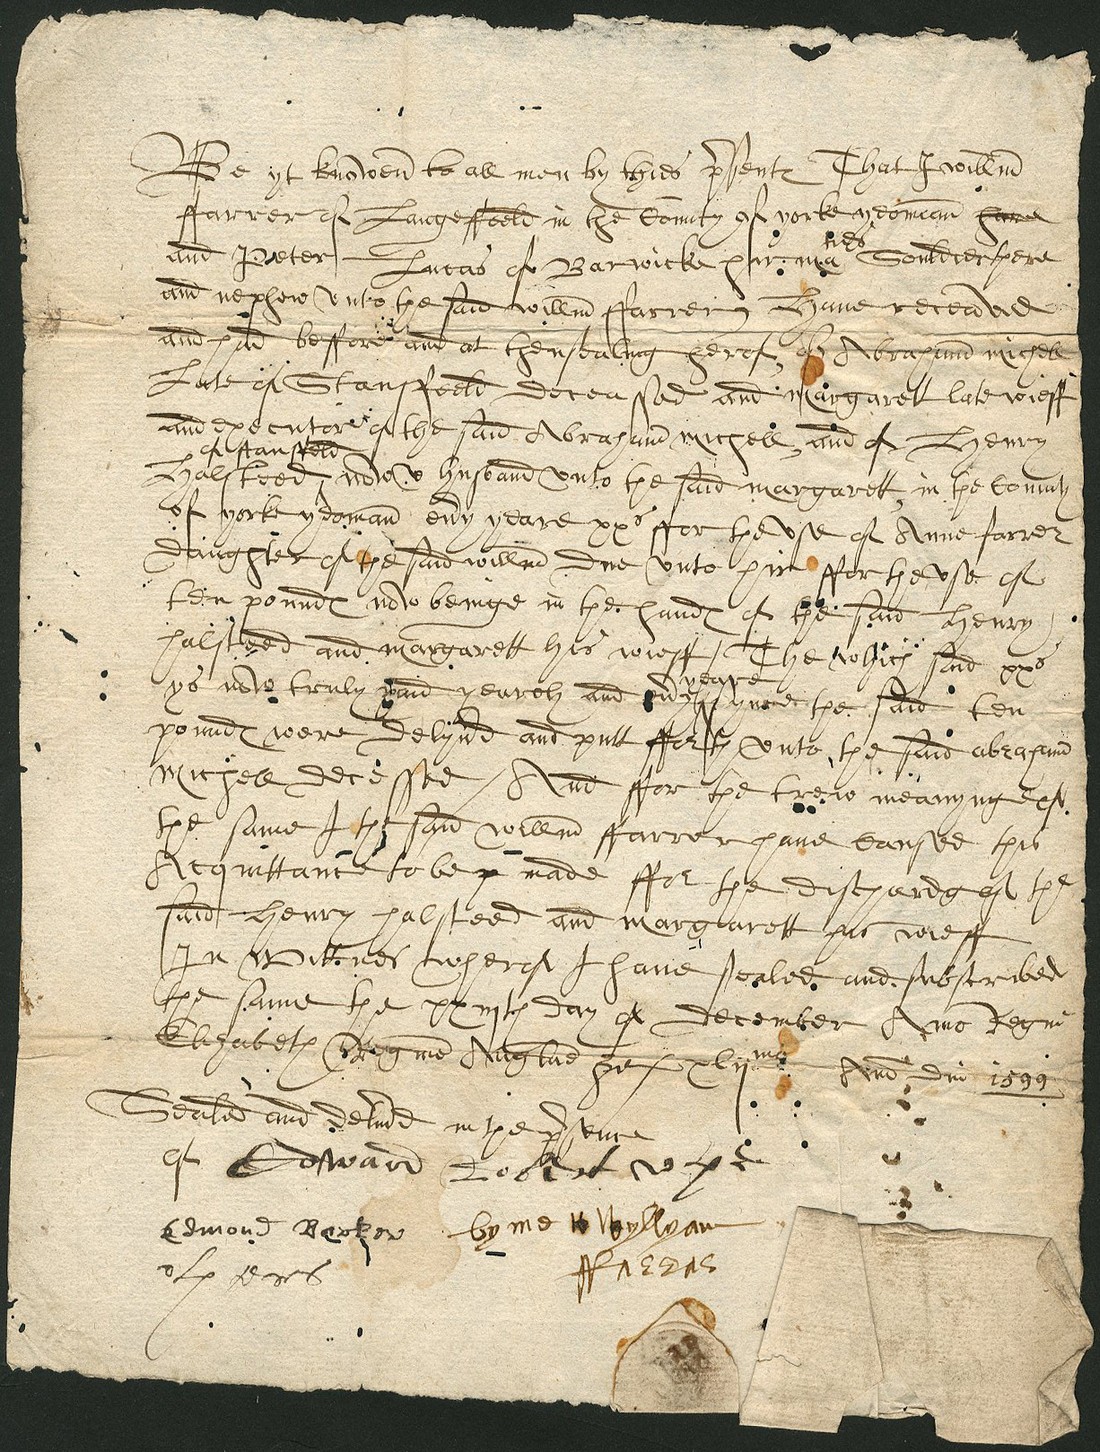 Be yt knowen to all men by thes p'sents That I willm
ffarrer of Langeffeeld in the County of yorke yeoman have
and Peter Lucas of Barwicke hir: ma ties Souldier there
and nephew unto the said willm ffarrer Have receaved
and had beffore and at thensealing herof, of Abraham Michell
Late of Stansffeeld deceassed and margarett late wieff
and executor of the said Abraham Michell, and of Henry
of stansffeld
Halsteed, now husband unto the said margarett, in the County
of yorke yeoman ev'y yeare xxs ffor the use of Anne farrer
daughter of the said willm due unto hir ffor the use of
ten pounds now beinge in the hands of the said Henry
halsteed and margarett his wieff / The which said xxs
yeare
ys now truly paid yearely and ev'y synce the said ten
pounds were delyv'd and putt fforth unto the said abraham
Michell decessed / And ffor the trew meanynge of
the same I the said willm ffarrer have caused this
Acquittance to be made ffor the dischardg of the
said Henry halsteed and margarett his wieff
In Wittnes wherof I have sealed and subscribed
the same the day of december Anno Regni
Elizabeth Regine Anglie xlij mo Anno dni 1599
Sealed and deliv'd in the p'sence
of Edward Robert
Edmond Barker by me Wyllyam
ffarrar